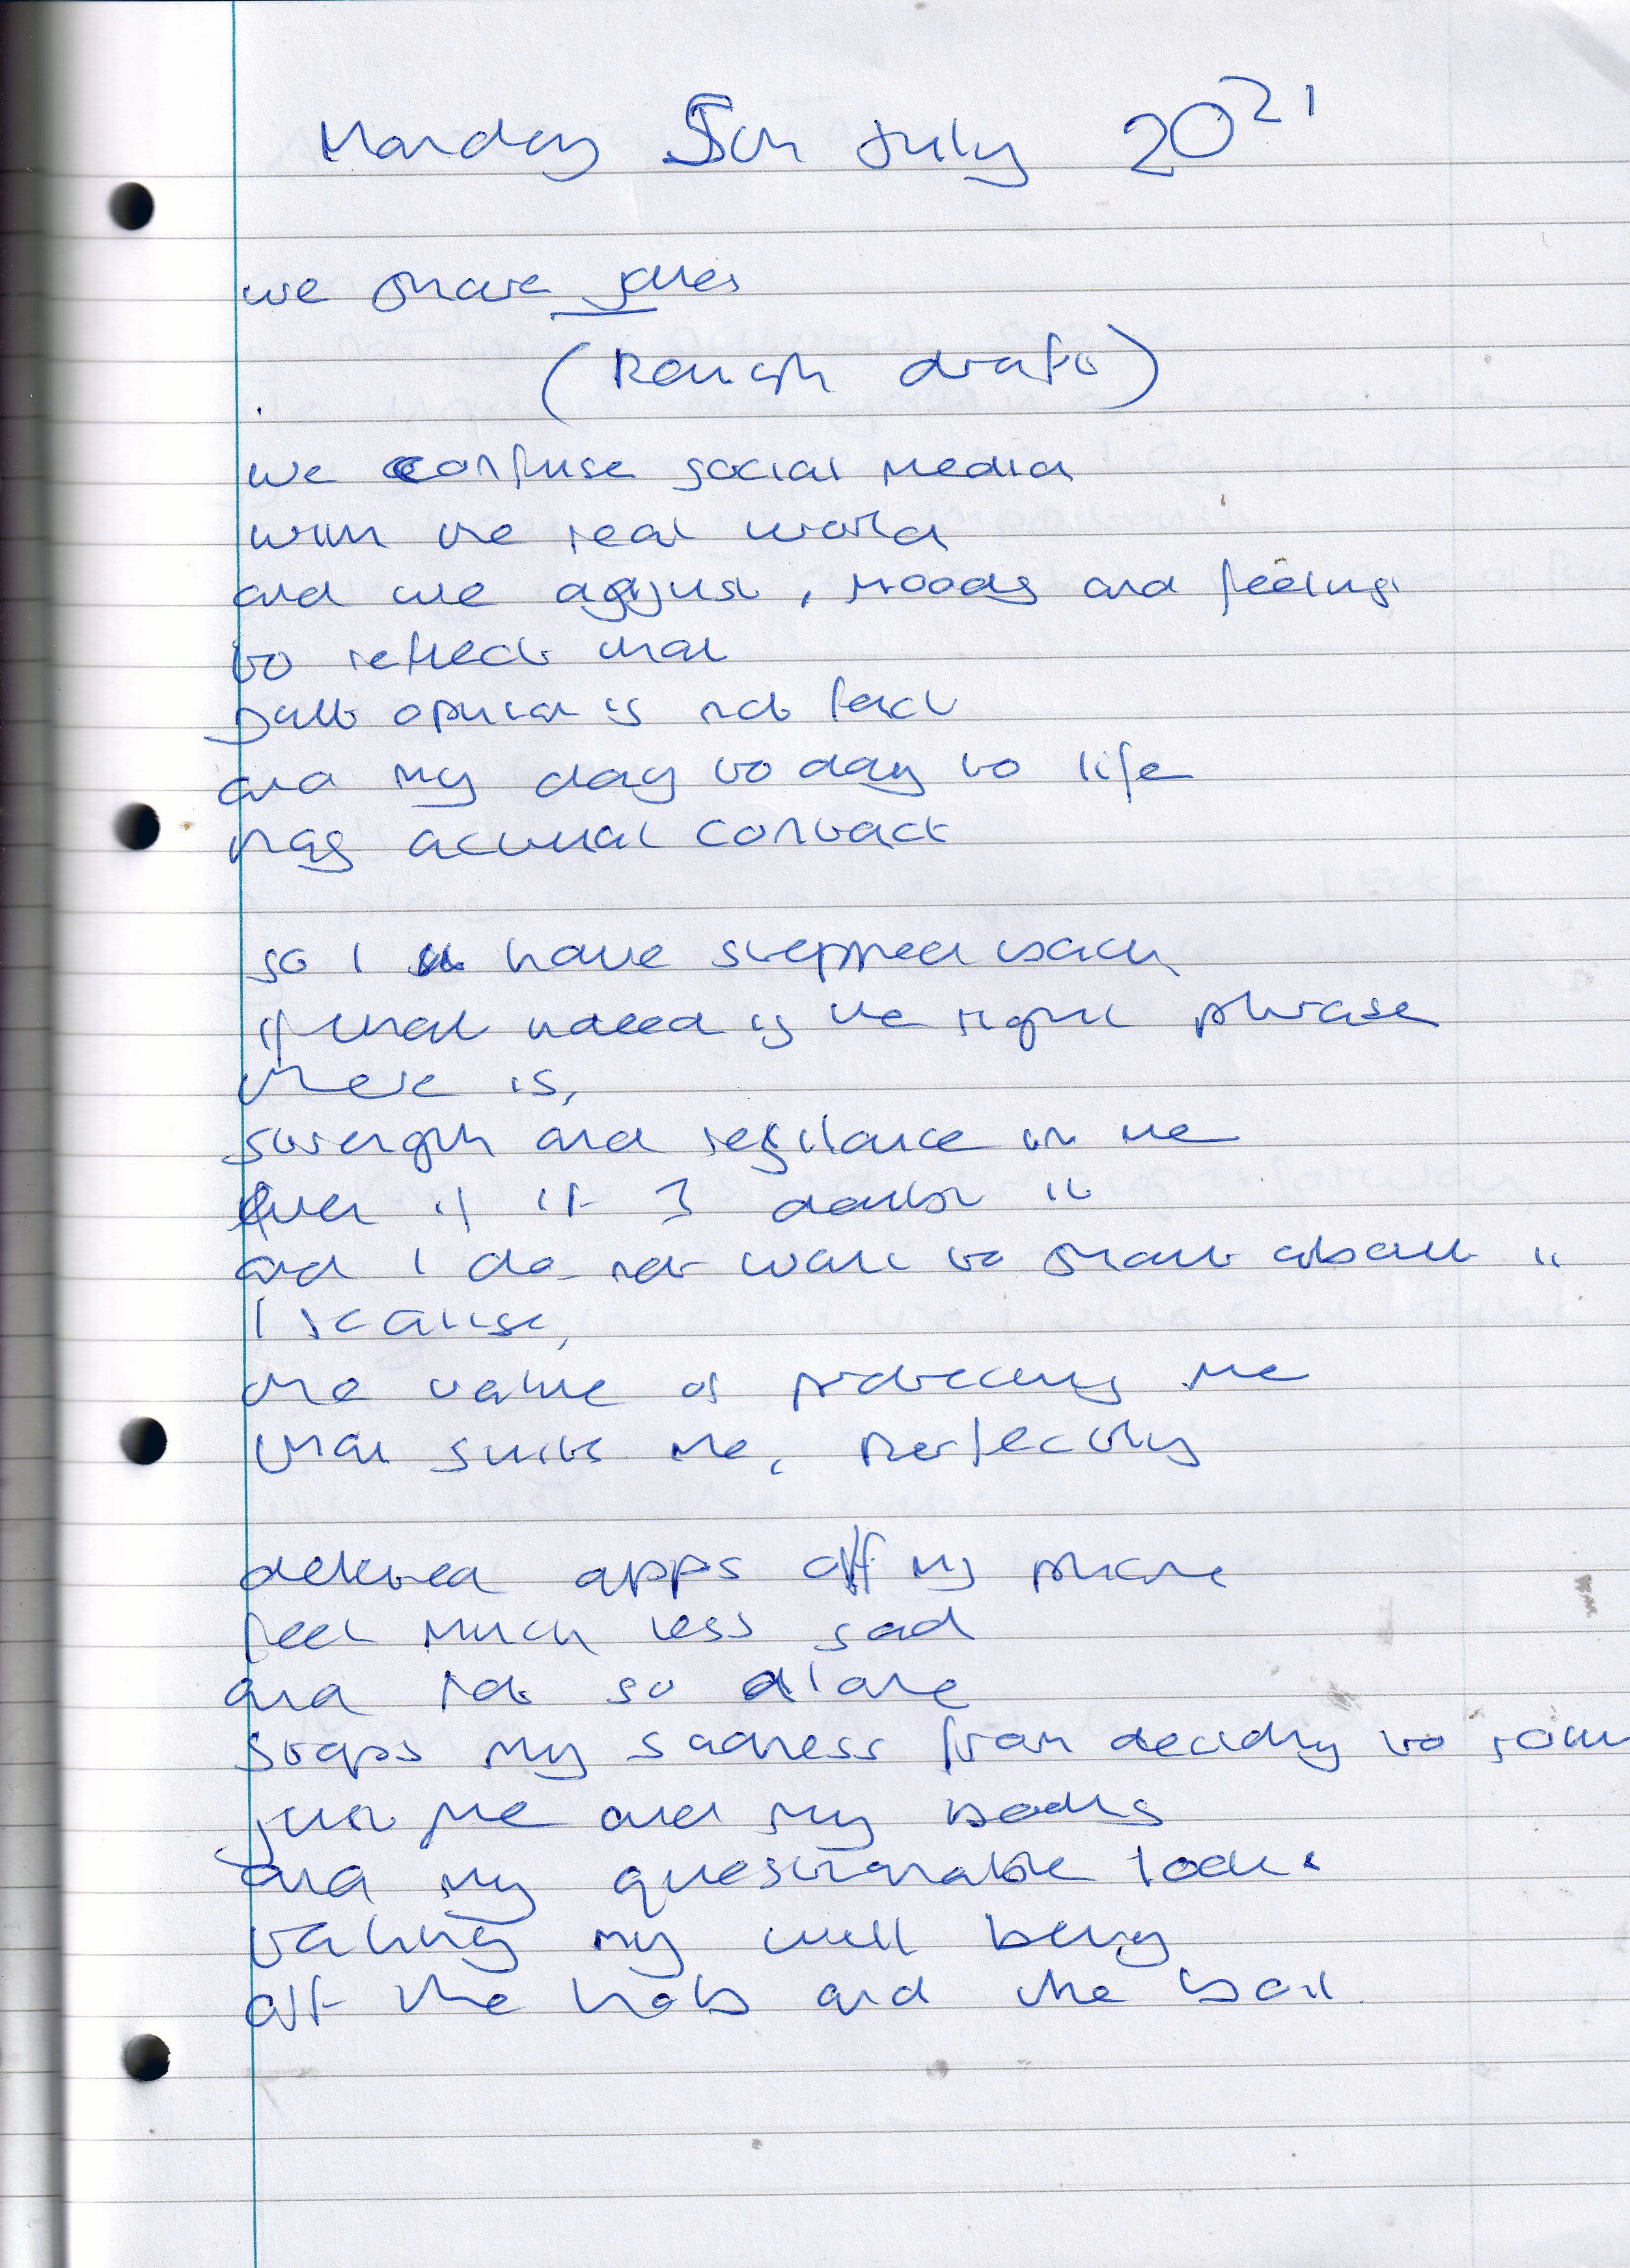 Monday 5th July 2021
we share jokes
(Rough draft)
we confuse social media
with the real world
and we adjust, moods and feelings
to reflect that
but opinion is not fact
and my day to day to life
has actual contact
so I have stepped back
if that indeed is the right phrase
there is,
strength and resilance in me
Even if it I doubt it
and I do not want to shout about it
because,
the value of protecting me
that suits me, perfectly
deleted apps off my phone
feel much less sad
and not so alone
stops my sadness from deciding to
just me and my books
and my questionable looks
taking my well being
off the hob and the boil